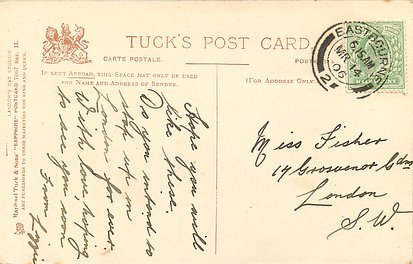 TUCK'S POST CARD
CARTE POSTALE.
POS
IF SENT ABROAD, THIS SPACE MAY ONLY BE USED
FOR NAME AND ADDRESS OF SENDER.
(FOR ADDRESS ONLY
EASTBOURNE
6.15AM
MR 14
06
2
Hope you will
like these.
Do you intend to
stop up in
London for ever
With love, hoping
to see you soon
From
Miss Fisher
17 Grosvenor Gdns
London
S.W.
RAPHAEL TUCK & SONS' "SAPPHIRE" POSTCARD
ART PUBLISHERS TO THEIR MAJESTIES THE KING AND QUEEN.